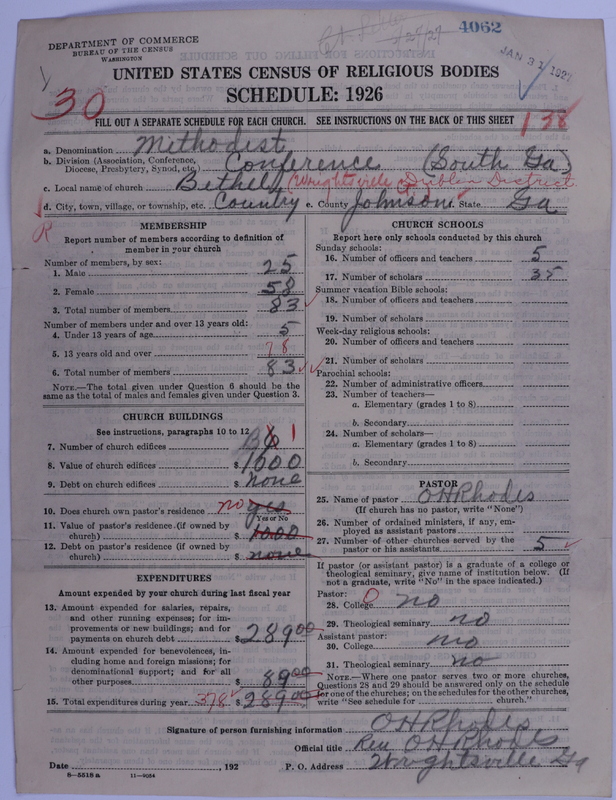 4062
DEPARTMENT OF COMMERCE
BUREAU OF THE CENSUS
WASHINGTON
JAN 31 1927
UNITED STATES CENSUS OF RELIGIOUS BODIES
SCHEDULE: 1926
30
FILL OUT A SEPARATE SCHEDULE FOR EACH CHURCH. SEE INSTRUCTIONS ON THE BACK OF THIS SHEET
138
a. Denomination Mithodist
b. Division (Association, Conference, Diocese, Presbytery, Synod, etc.) Conference (South Ga)
c. Local name of church Bethel (Wrightsville Dublin District
d. City, town, village, or township, etc. Country e. County Johnson f. State Ga
R
MEMBERSHIP
Report number of members according to definition of
member in your church
Number of members, by sex:
1. Male 25
2. Female 58
3. Total number of members 83
Number of members under and over 13 years old:
4. Under 13 years of age 5
5. 13 years old and over 78
6. Total number of members 83
NOTE.—The total given under Question 6 should be the
same as the total of males and females given under Question 3.
CHURCH BUILDINGS
See instructions, paragraphs 10 to 12
7. Number of church edifices 1
8. Value of church edifices $ 1000
9. Debt on church edifices $ none
10. Does church own pastor's residence no yes
Yes or No
11. Value of pastor's residence (if owned by
church) $ 1000
12. Debt on pastor's residence (if owned by
church) $ none
EXPENDITURES
Amount expended by your church during last fiscal year
13. Amount expended for salaries, repairs,
and other running expenses; for im-
provements or new buildings; and for
payments on church debt $ 289 00
14. Amount expended for benevolences, in-
cluding home and foreign missions; for
denominational support; and for all
other purposes $ 89 00
15. Total expenditures during year 378 $ 289 00
CHURCH SCHOOLS
Report here only schools conducted by this church
Sunday schools:
16. Number of officers and teachers 5
17. Number of scholars 35
Summer vacation Bible schools:
18. Number of officers and teachers
19. Number of scholars
Week-day religious schools:
20. Number of officers and teachers
21. Number of scholars
Parochial schools:
22. Number of administrative officers
23. Number of teachers—
a. Elementary (grades 1 to 8)
b. Secondary
24. Number of scholars—
a. Elementary (grades 1 to 8)
b. Secondary
PASTOR
25. Name of pastor O H Rhodes
(If church has no pastor, write "None")
26. Number of ordained ministers, if any, em-
ployed as assistant pastors
27. Number of other churches served by the
pastor or his assistants 5
If pastor (or assistant pastor) is a graduate of a college or
theological seminary, give name of institution below. (If
not a graduate, write "No" in the space indicated.)
Pastor:
28. College 0 no
29. Theological seminary no
Assistant pastor:
30. College no
31. Theological seminary no
NOTE.—Where one pastor serves two or more churches,
Questions 28 and 29 should be answered only on the schedule
for one of the churches; on the schedules for the other churches,
write "See schedule for church."
Signature of person furnishing information O H Rhodes
Official title Rev O H Rhodes
Date , 192 P. O. Address Wrightsville Ga
8—5518 a 11—9064